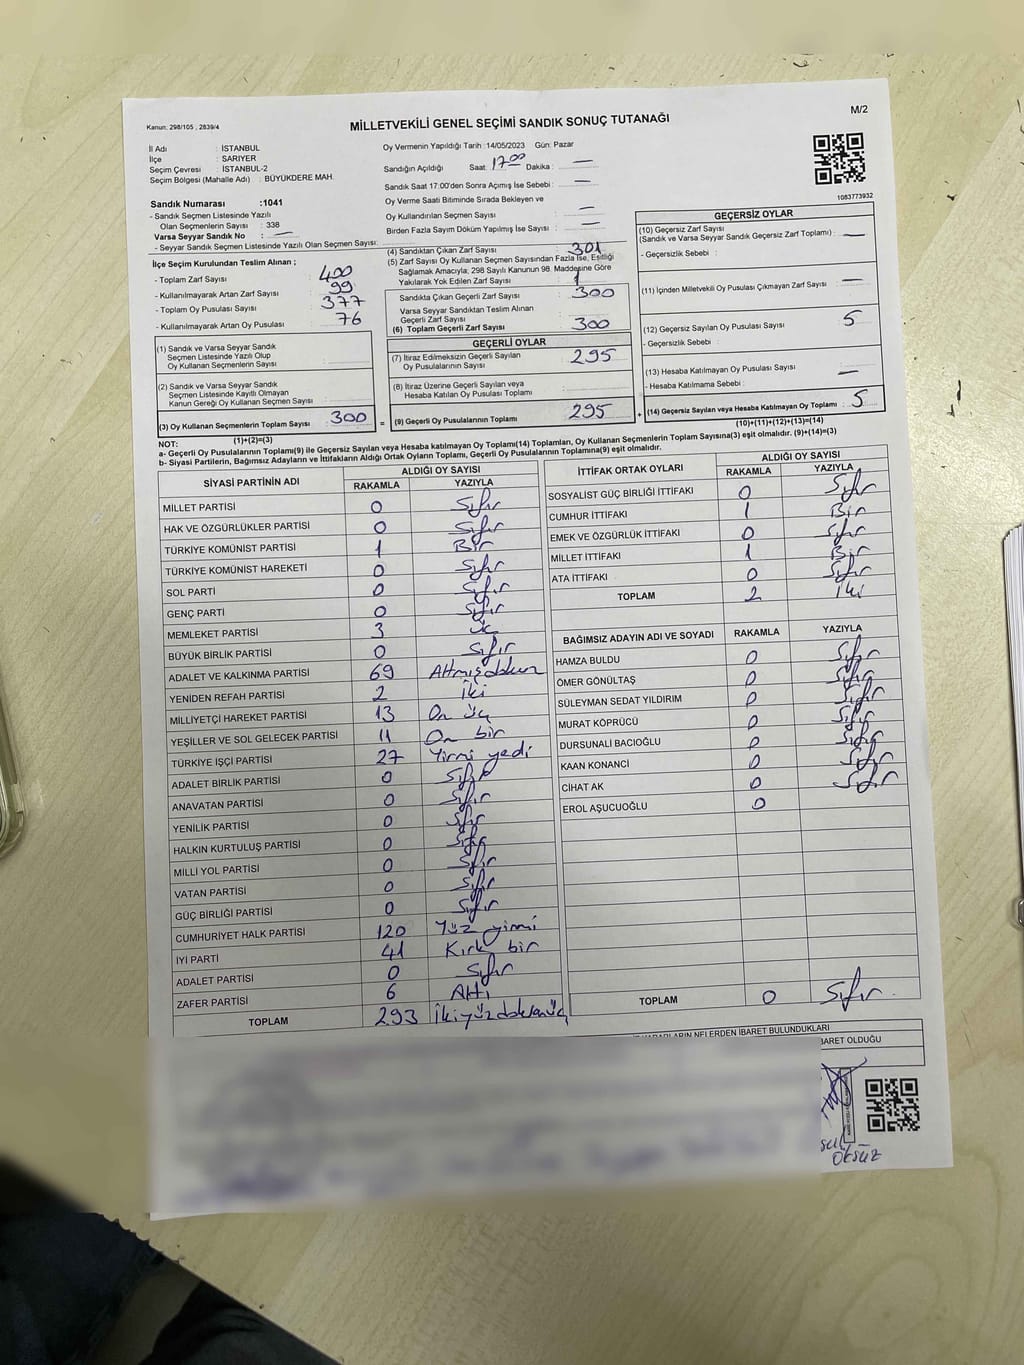 Kanun: 298/105 , 2839/4
MİLLETVEKİLİ GENEL SEÇİMİ SANDIK SONUÇ TUTANAĞI
M/2
İl Adı : İSTANBUL
İlçe : SARIYER
Seçim Çevresi : İSTANBUL-2
Seçim Bölgesi (Mahalle Adı) : BÜYÜKDERE MAH.
Sandık Numarası :1041
- Sandık Seçmen Listesinde Yazılı
Olan Seçmenlerin Sayısı : 338
Varsa Seyyar Sandık No : —
- Seyyar Sandık Seçmen Listesinde Yazılı Olan Seçmen Sayısı:
Oy Vermenin Yapıldığı Tarih :14/05/2023 Gün: Pazar
Sandığın Açıldığı Saat: 17:00 Dakika : —
Sandık Saat 17:00'den Sonra Açımış İse Sebebi : —
Oy Verme Saati Bitiminde Sırada Bekleyen ve
Oy Kullandırılan Seçmen Sayısı —
Birden Fazla Sayım Döküm Yapılmış İse Sayısı : —
1083773932
İlçe Seçim Kurulundan Teslim Alınan ;
- Toplam Zarf Sayısı 400
- Kullanılmayarak Artan Zarf Sayısı 99
- Toplam Oy Pusulası Sayısı 377
- Kullanılmayarak Artan Oy Pusulası 76
(1) Sandık ve Varsa Seyyar Sandık
Seçmen Listesinde Yazılı Olup
Oy Kullanan Seçmenlerin Sayısı
(2) Sandık ve Varsa Seyyar Sandık
Seçmen Listesinde Kayıtlı Olmayan
Kanun Gereği Oy Kullanan Seçmen Sayısı
(3) Oy Kullanan Seçmenlerin Toplam Sayısı 300
(1)+(2)=(3)
(4) Sandıktan Çıkan Zarf Sayısı 301
(5) Zarf Sayısı Oy Kullanan Seçmen Sayısından Fazla İse, Eşitliği
Sağlamak Amacıyla, 298 Sayılı Kanunun 98. Maddesine Göre
Yakılarak Yok Edilen Zarf Sayısı 1
Sandıkta Çıkan Geçerli Zarf Sayısı 300
Varsa Seyyar Sandıktan Teslim Alınan
Geçerli Zarf Sayısı
(6) Toplam Geçerli Zarf Sayısı 300
GEÇERLİ OYLAR
(7) İtiraz Edilmeksizin Geçerli Sayılan
Oy Pusulalarının Sayısı 295
(8) İtiraz Üzerine Geçerli Sayılan veya
Hesaba Katılan Oy Pusulası Toplamı
= (9) Geçerli Oy Pusulalarının Toplamı 295
GEÇERSİZ OYLAR
(10) Geçersiz Zarf Sayısı
(Sandık ve Varsa Seyyar Sandık Geçersiz Zarf Toplamı) : —
- Geçersizlik Sebebi :
(11) İçinden Milletvekili Oy Pusulası Çıkmayan Zarf Sayısı —
(12) Geçersiz Sayılan Oy Pusulası Sayısı 5
- Geçersizlik Sebebi :
(13) Hesaba Katılmayan Oy Pusulası Sayısı —
- Hesaba Katılmama Sebebi :
+ (14) Geçersiz Sayılan veya Hesaba Katılmayan Oy Toplamı 5
(10)+(11)+(12)+(13)=(14)
NOT:
a- Geçerli Oy Pusulalarının Toplamı(9) ile Geçersiz Sayılan veya Hesaba katılmayan Oy Toplamı(14) Toplamları, Oy Kullanan Seçmenlerin Toplam Sayısına(3) eşit olmalıdır. (9)+(14)=(3)
b- Siyasi Partilerin, Bağımsız Adayların ve İttifakların Aldığı Ortak Oyların Toplamı, Geçerli Oy Pusulalarının Toplamına(9) eşit olmalıdır.
SİYASİ PARTİNİN ADI ALDIĞI OY SAYISI
RAKAMLA YAZIYLA
MİLLET PARTİSİ 0 Sıfır
HAK VE ÖZGÜRLÜKLER PARTİSİ 0 Sıfır
TÜRKİYE KOMÜNİST PARTİSİ 1 Bir
TÜRKİYE KOMÜNİST HAREKETİ 0 Sıfır
SOL PARTİ 0 Sıfır
GENÇ PARTİ 0 Sıfır
MEMLEKET PARTİSİ 3 üç
BÜYÜK BİRLİK PARTİSİ 0 Sıfır
ADALET VE KALKINMA PARTİSİ 69 Altmışdokuz
YENİDEN REFAH PARTİSİ 2 İki
MİLLİYETÇİ HAREKET PARTİSİ 13 On üç
YEŞİLLER VE SOL GELECEK PARTİSİ 11 On bir
TÜRKİYE İŞÇİ PARTİSİ 27 Yirmi yedi
ADALET BİRLİK PARTİSİ 0 Sıfır
ANAVATAN PARTİSİ 0 Sıfır
YENİLİK PARTİSİ 0 Sıfır
HALKIN KURTULUŞ PARTİSİ 0 Sıfır
MİLLİ YOL PARTİSİ 0 Sıfır
VATAN PARTİSİ 0 Sıfır
GÜÇ BİRLİĞİ PARTİSİ 0 Sıfır
CUMHURİYET HALK PARTİSİ 120 Yüz yirmi
İYİ PARTİ 41 Kırk bir
ADALET PARTİSİ 0 Sıfır
ZAFER PARTİSİ 6 Altı
TOPLAM 293 İkiyüzdoksanüç
İTTİFAK ORTAK OYLARI ALDIĞI OY SAYISI
RAKAMLA YAZIYLA
SOSYALİST GÜÇ BİRLİĞİ İTTİFAKI 0 Sıfır
CUMHUR İTTİFAKI 1 Bir
EMEK VE ÖZGÜRLÜK İTTİFAKI 0 Sıfır
MİLLET İTTİFAKI 1 Bir
ATA İTTİFAKI 0 Sıfır
TOPLAM 2 İki
BAĞIMSIZ ADAYIN ADI VE SOYADI RAKAMLA YAZIYLA
HAMZA BULDU 0 Sıfır
ÖMER GÖNÜLTAŞ 0 Sıfır
SÜLEYMAN SEDAT YILDIRIM 0 Sıfır
MURAT KÖPRÜCÜ 0 Sıfır
DURSUNALİ BACIOĞLU 0 Sıfır
KAAN KONANCİ 0 Sıfır
CİHAT AK 0 Sıfır
EROL AŞUCUOĞLU 0
TOPLAM 0 Sıfır
NELERDEN İBARET BULUNDUKLARI
BARET OLDUĞU
ÖKSÜZ